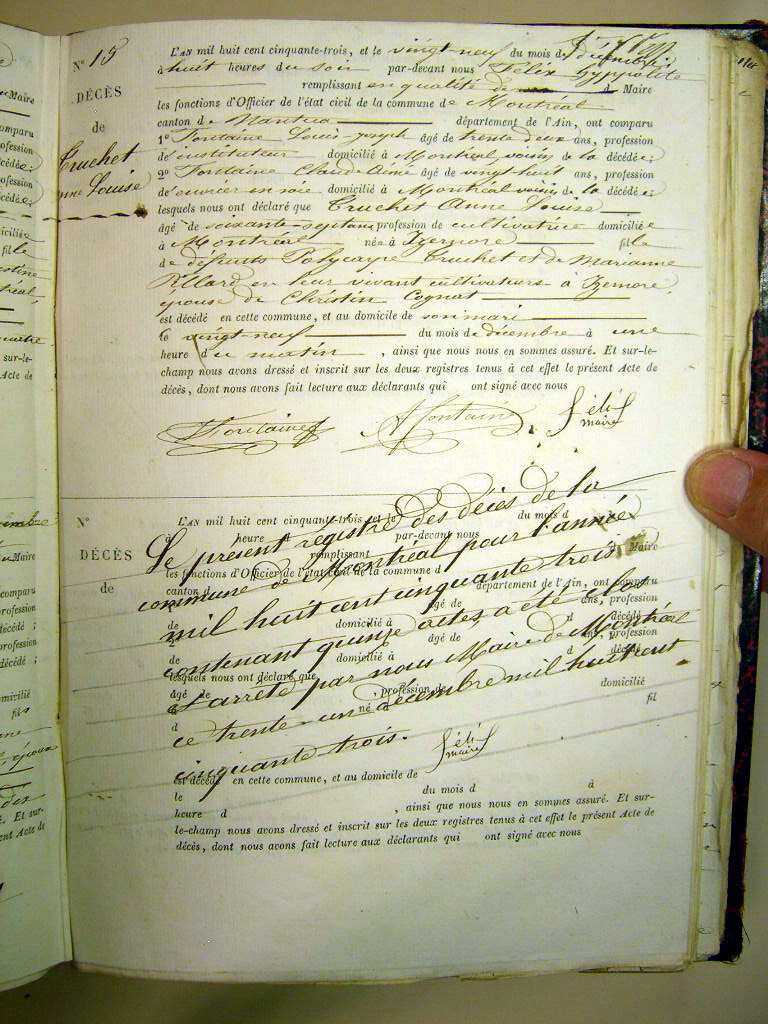 N° 15
DÉCÈS
de
Truchet
nne Louise
L'AN mil huit cent cinquante-trois, et le vingt-neuf du mois de décembre
à huit heures du soir par-devant nous Félix hyppolite
remplissant en qualité de Maire
les fonctions d'Officier de l'état civil de la commune de Montréal
canton de Nantua département de l'Ain, ont comparu
1° Fontaine Louis joseph âgé de trente deux ans, profession
de instituteur domicilié à Montréal, voisin de la décédée;
2° Fontaine Claude Aimé âgé de vingt huit ans, profession
de ouvrier en soie domicilié à Montréal voisin de la décédée;
lesquels nous ont déclaré que Truchet Anne Louise
âgé de soixante-sept ans profession de cultivatrice domiciliée
à Montréal née à Izernore fille
de défunts Polycarpe Truchet et de Marianne
en leur vivant cultivateurs à Izernore,
épouse de Christin Cognat
est décédé en cette commune, et au domicile de son mari
le vingt-neuf du mois de décembre à une
heure du matin, ainsi que nous nous en sommes assuré. Et sur-le-
champ nous avons dressé et inscrit sur les deux registres tenus à cet effet le présent Acte de
décès, dont nous avons fait lecture aux déclarants qui ont signé avec nous
Fontaine Fontaine Félix
maire
N°
DÉCÈS
de
L'AN mil huit cent cinquante-trois, et le du mois d
à heure d par-devant nous
remplissant d Maire
les fonctions d'Officier de l'état civil de la commune d
canton d département de l'Ain, ont comparu
1° âgé de ans, profession
de domicilié à d décédé
2° âgé de ans, profession
de domicilié à d décédé
lesquels nous ont déclaré que
âgé de , profession de domicilié
d né fil
est décédé en cette commune, et au domicile de
le du mois d à
heure d , ainsi que nous nous en sommes assuré. Et sur-
le-champ nous avons dressé et inscrit sur les deux registres tenus à cet effet le présent Acte de
décès, dont nous avons fait lecture aux déclarants qui ont signé avec nous
Le présent registre des décès de la
commune de Montréal pour l'année
mil huit cent cinquante trois
contenant quinze actes a été clos
et arrêté par nous Maire de Montréal
ce trente-un décembre mil huit cent
cinquante trois.
Félix
maire